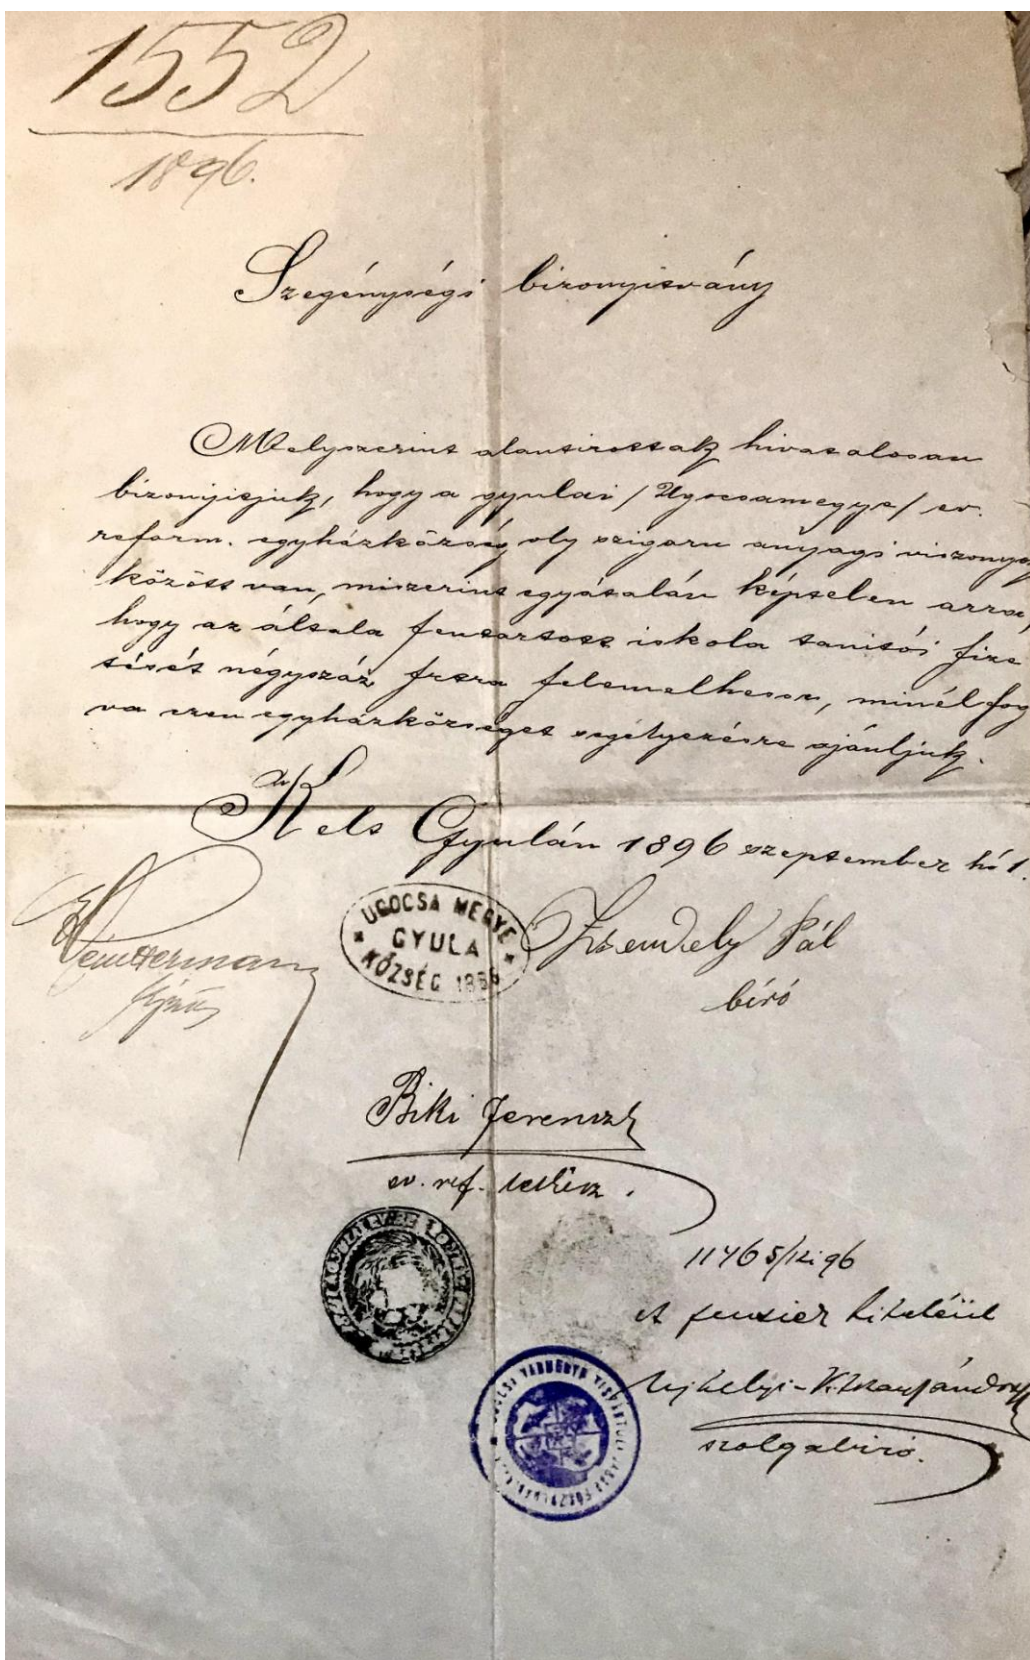 1552
1896.
Szegénységi bizonyitvány
Melyszerint alantirottak hivatalosan
bizonyitjuk, hogy a gyulai / Ugocsamegye / ev.
reform. egyházközség oly szigoru anyagi viszonyok
között van, miszerint egyátalán képtelen arra,
hogy az általa fentartott iskola tanitói fize
tését négyszáz frtra felemelhesse, minél fog
va ezen egyházközséget segélyezésre ajánljuk.
Kelt Gyulán 1896 szeptember hó 1.
UGOCSA MEGYE
GYULA
KÖZSÉG
Pál
biró
Biki Ferencz
ev. ref. lelkész.
96
A fentiek hiteléül
Sándor
szolgabiró.